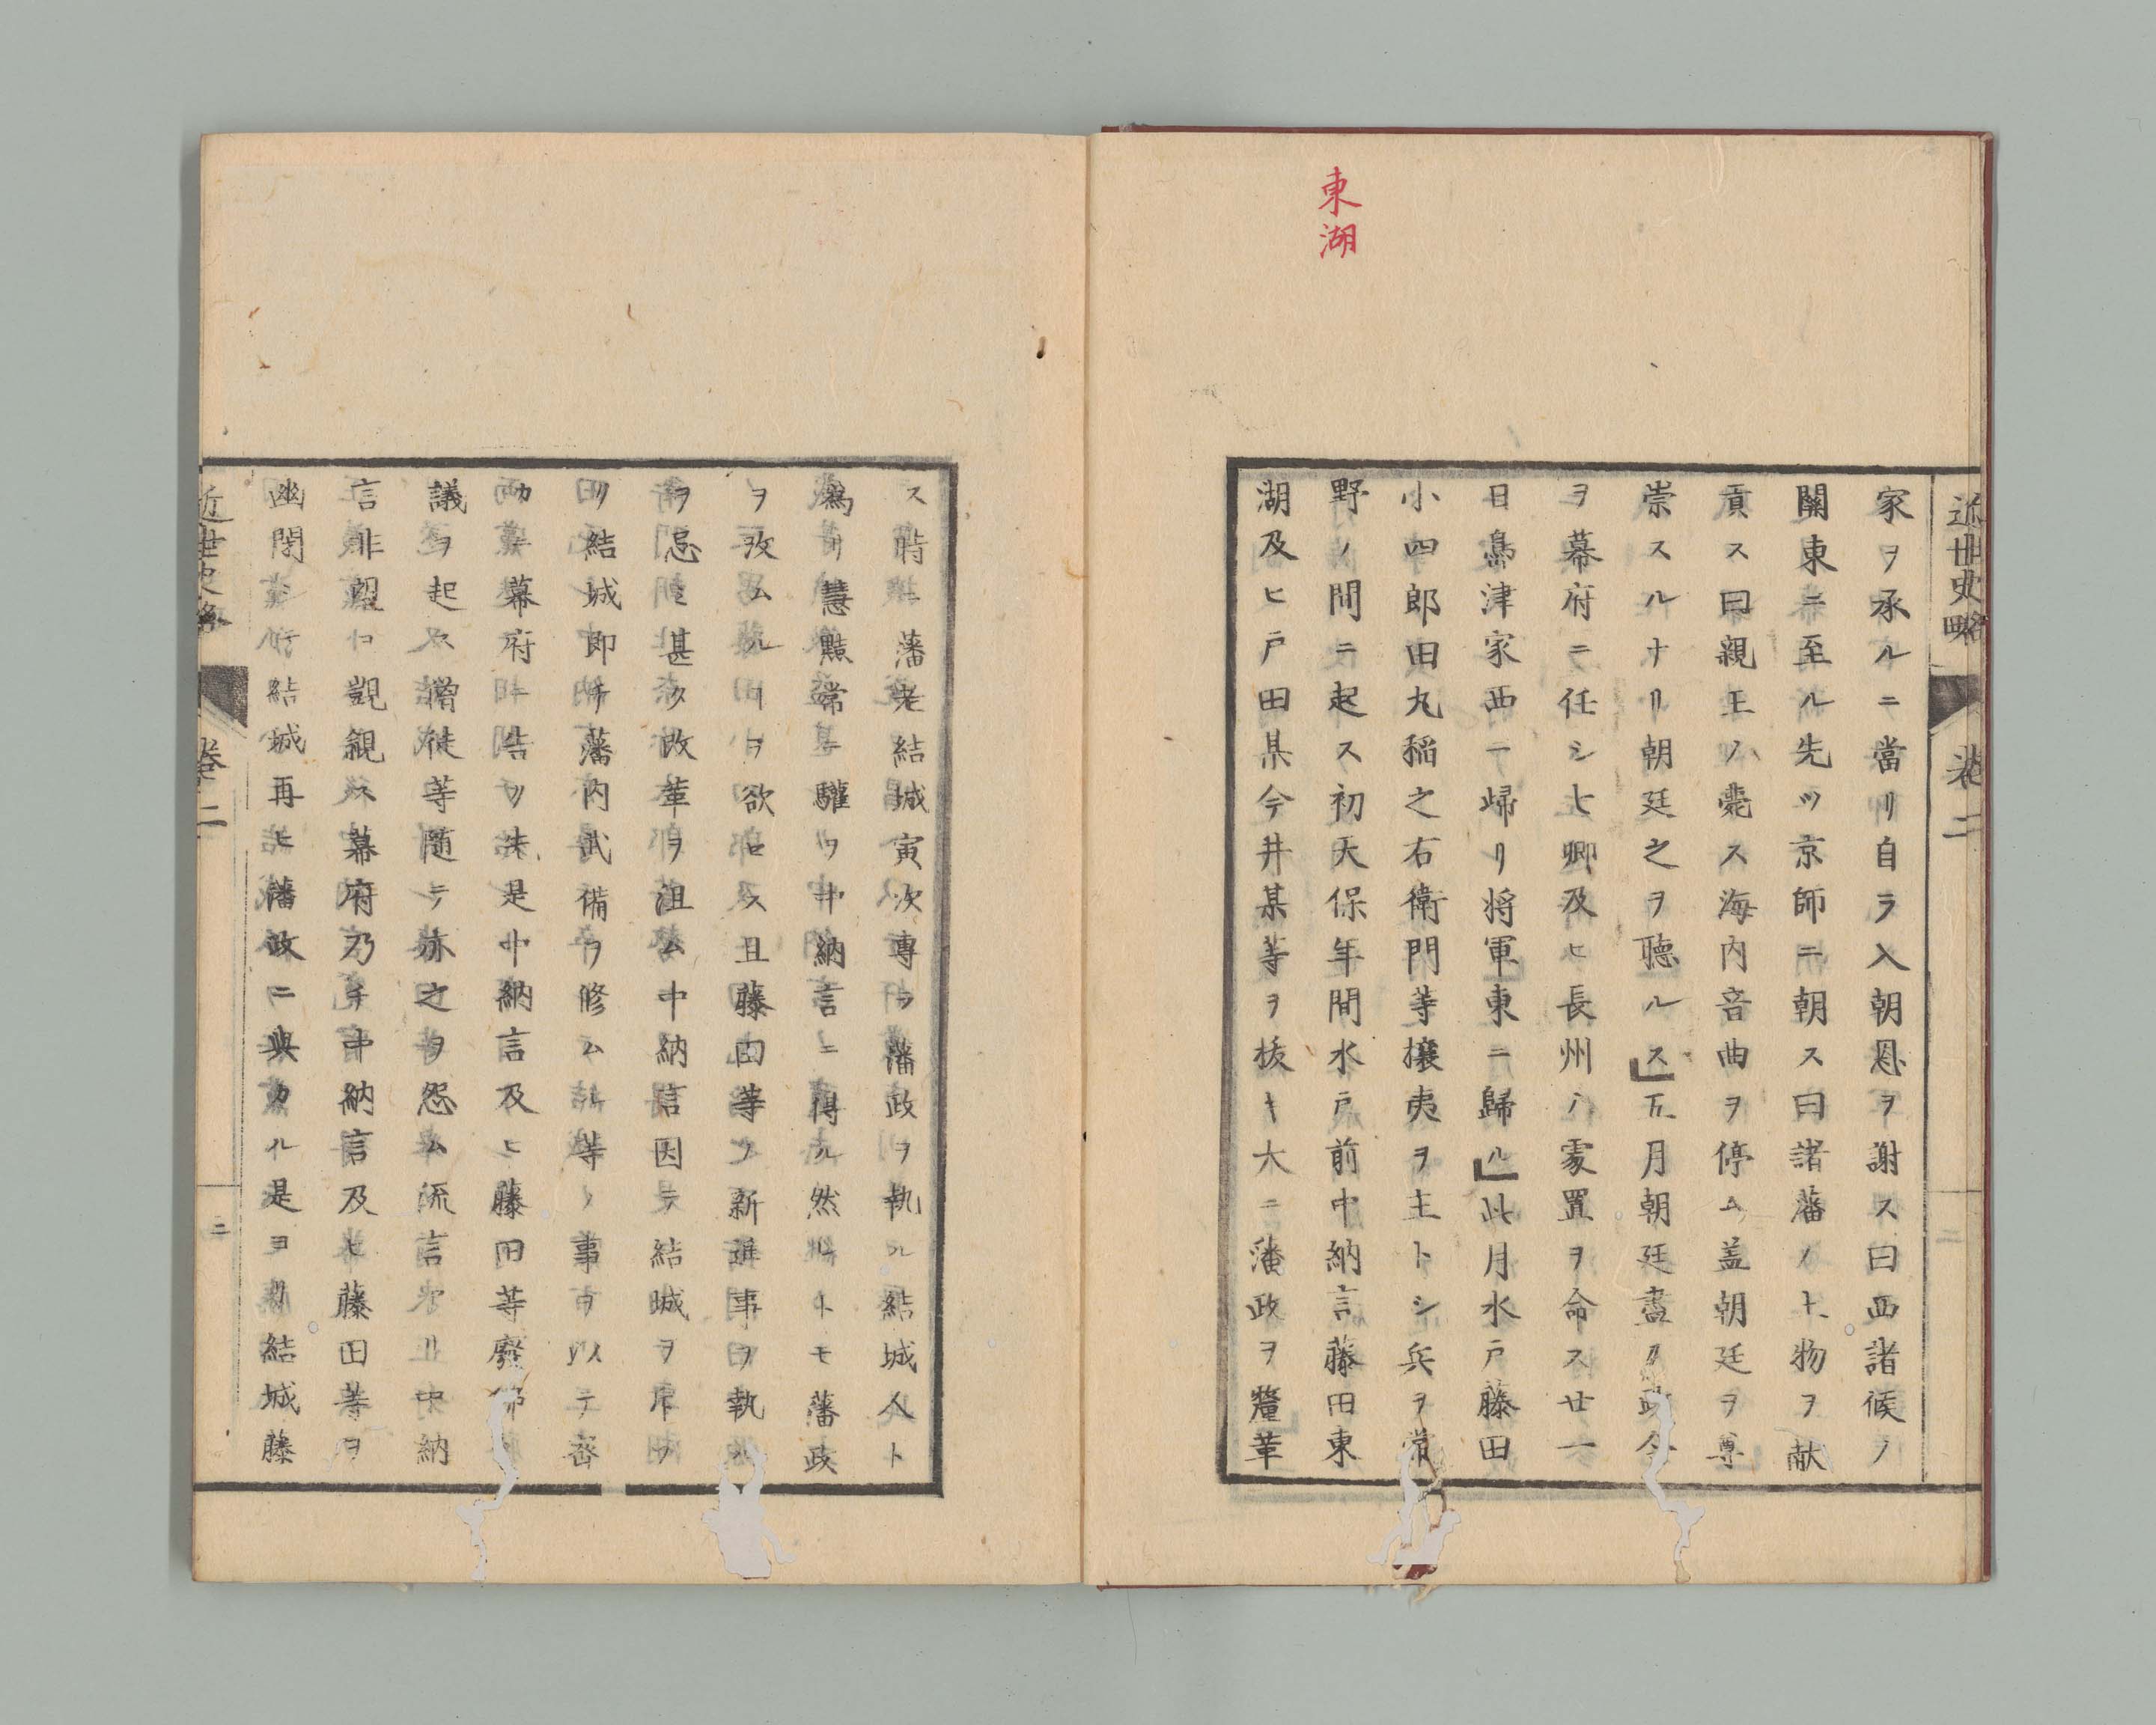 東湖
近世史略 卷二
家ヲ承ルニ當リ自ラ入朝恩ヲ謝ス曰西諸候ノ
關東ニ至ル先ツ京師ニ朝ス曰諸藩ノ土物ヲ献
貢ス曰親王ノ薨ス海内音曲ヲ停ム盖朝廷ヲ尊
崇スルナリ朝廷之ヲ聴ルス五月朝廷盡ク政令
ヲ幕府ニ任シ七卿及ヒ長州ノ處置ヲ命ス廿一
日島津家西ニ歸リ将軍東ニ歸ル此月水戸藤田
小四郎田丸稲之右衛門等攘夷ヲ主トシ兵ヲ常
野ノ間ニ起ス初天保年間水戸前中納言藤田東
湖及ヒ戸田某今井某等ヲ抜キ大ニ藩政ヲ釐革
ス時ニ藩老結城寅次專ラ藩政ヲ執ル結城人ト
爲リ慧黠常ニ驩ヲ中納言ニ得ル然ルトモ藩政
ヲ攺ムルヿヲ欲セス且藤田等ノ新進事ヲ執ル
ヲ忌ミ甚タ改革ヲ沮ム中納言因テ結城ヲ斥ク
リ結城即チ藩内武備ヲ修ムル等ノ事ヲ以テ密
カニ幕府ニ告ク先是中納言及ヒ藤田等廢佛
議ヲ起ス僧徒等随テ亦之ヲ怨ム流言アリ中納
言非望ヲ覬覦ス幕府乃チ中納言及ヒ藤田等ヲ
幽閉シ結城再ヒ藩政ニ與カル是ヨリ結城藤
近世史略 卷二 二